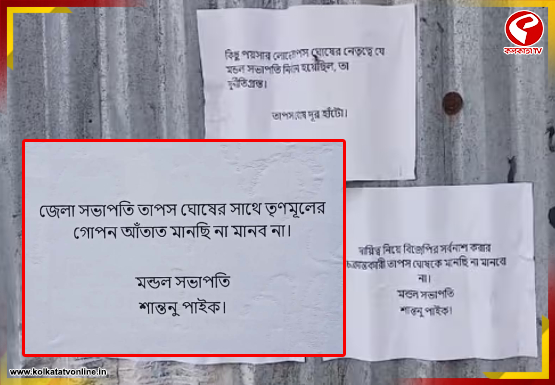 কলকাতা TV
কিছু পয়সার লোভে তাপস ঘোষের নেতৃত্বে যে
মন্ডল সভাপতি নিয়োগ হয়েছিল, তা
দুর্নীতিগ্রস্ত।
তাপস ঘোষ দূর হাঁটো।
জেলা সভাপতি তাপস ঘোষের সাথে তৃণমূলের
গোপন আঁতাত মানছি না মানব না।
মন্ডল সভাপতি
শান্তনু পাইক।
দায়িত্ব নিয়ে বিজেপির সর্বনাশ করার
চক্রান্তকারী তাপস ঘোষকে মানছি না মানবো
না।
মন্ডল সভাপতি
শান্তনু পাইক।
www.kolkatatvonline.in